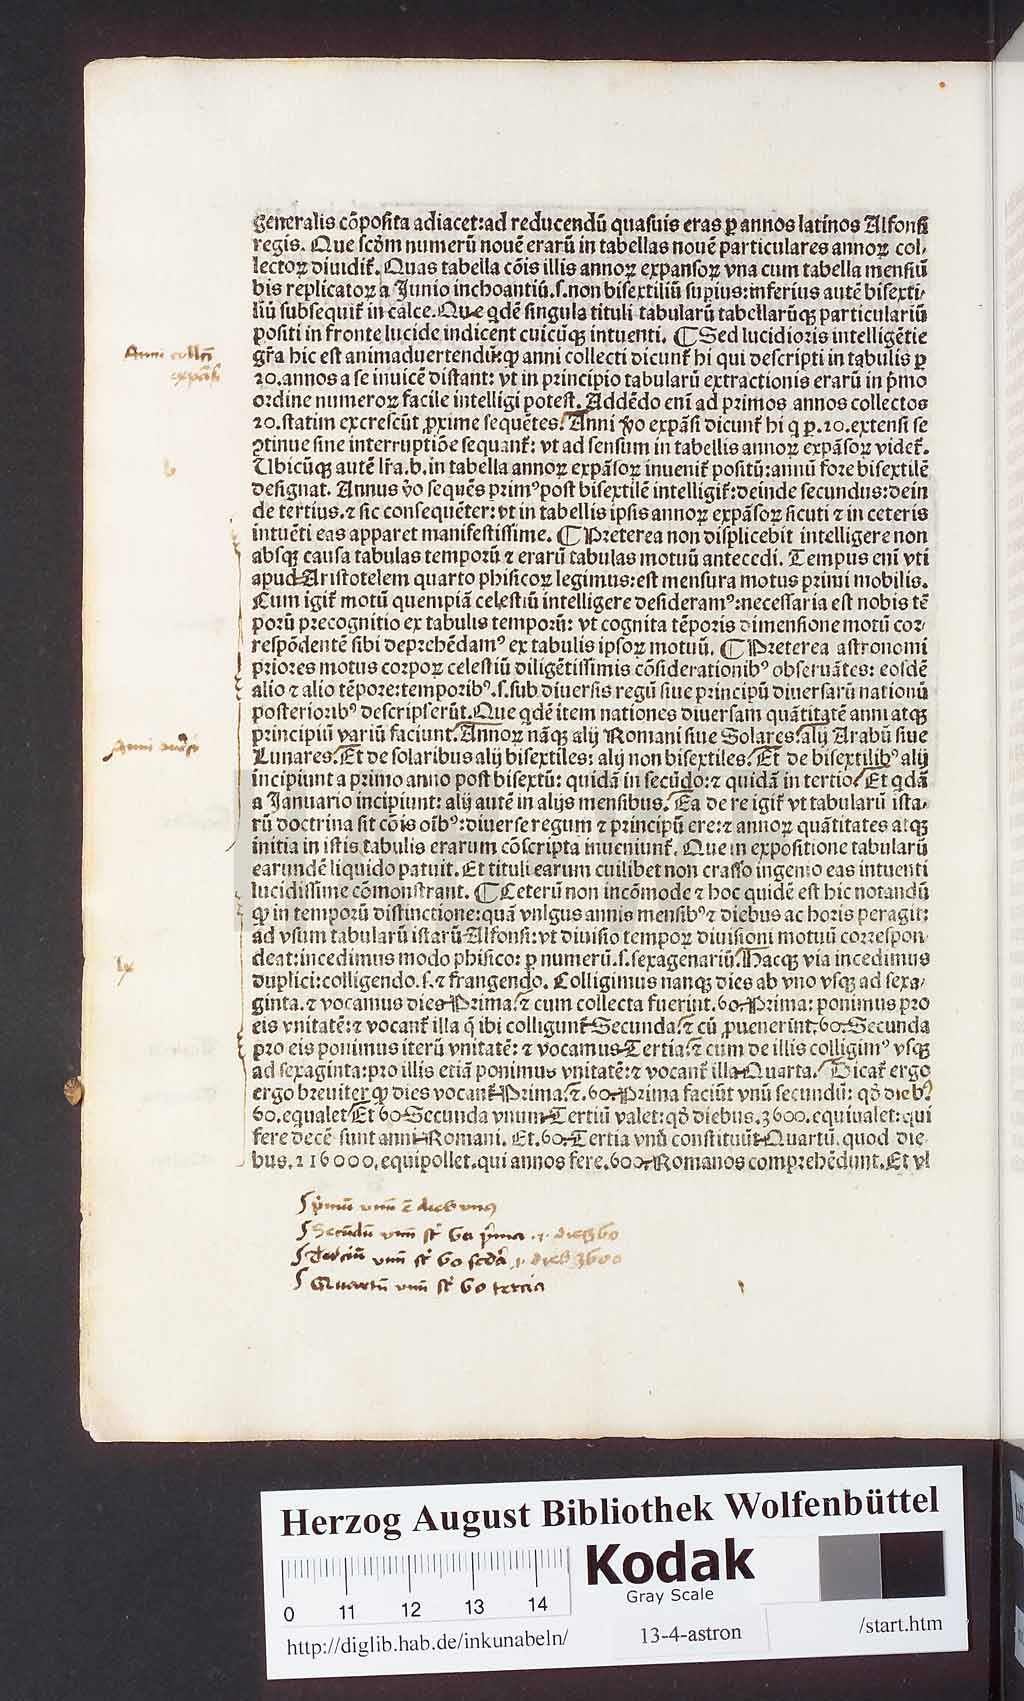 generalis cõposita adiacet:ad reducendũ quasuis eras ꝑ annos latinos Alfonsi
regis. Que scd̾m numerũ nouẽ erarũ in tabellas nouẽ particulares annoꝝ col-
lectoꝝ diuidit̃. Quas tabella cõis illis annoꝝ expansoꝝ vna cum tabella mensiũ
bis replicatoꝝ a Junio inchoantiũ.s.non bisextiliũ supius:inferius autẽ bisexti-
liũ subsequit̃ in calce. Que qdẽ singula tituli tabularũ tabellarũqꝫ particulariũ
positi in fronte lucide indicent cuicũqꝫ intuenti. ℂ Sed lucidioris intelligẽtie
gr̃a hic est animaduertendũ:ꝙ anni collecti dicunt̃ hi qui descripti in tabulis ꝑ
20.annos a se inuicẽ distant: vt in principio tabularũ extractionis erarũ in p̃mo
ordine numeroꝝ facile intelligi potest. Addẽdo eni ad primos annos collectos
20.statim excrescũt ꝓxime sequẽtes. Anni ṽo expãsi dicunt̃ hi q ꝑ.20.extensi se
ꝯtinue sine interruptiõe sequant̃: vt ad sensum in tabellis annoꝝ expãsoꝝ videt̃.
Ubicũqꝫ autẽ lr̃a.b.in tabella annoꝝ expãsoꝝ inuenit̃ positũ:annũ fore bisextilẽ
designat. Annus ṽo sequẽs primꝰ post bisextilẽ intelligit̃:deinde secundus:dein
de tertius.⁊ sic consequẽter: vt in tabellis ipsis annoꝝ expãsoꝝ sicuti ⁊ in ceteris
intuẽti eas apparet manifestissime. ℂ Preterea non displicebit intelligere non
absqꝫ causa tabulas temporũ ⁊ erarũ tabulas motuũ antecedi. Tempus eni vti
apud Aristotelem quarto phisicoꝝ legimus:est mensura motus primi mobilis.
Cum igit̃ motũ quempiã celestiũ intelligere desideramꝰ:necessaria est nobis tẽ
porũ precognitio ex tabulis temporũ: vt cognita tẽporis dimensione motũ cor-
respõdentẽ sibi deprehẽdamꝰ ex tabulis ipsoꝝ motuũ. ℂ Preterea astronomi
priores motus corpoꝝ celestiũ diligẽtissimis cõsiderationibꝰ obseruãtes: eosdẽ
alio ⁊ alio tẽpore:temporibꝰ.s.sub diuersis regũ siue principũ diuersarũ nationũ
posterioribꝰ descripserũt. Que qdẽ item nationes diuersam quãtitatẽ anni atqꝫ
principiũ variũ faciunt. Annoꝝ nãqꝫ alij Romani siue Solares. alij Arabũ siue
Lunares. Et de solaribus alij bisextiles: alij non bisextiles. Et de bisextilibꝰ alij
incipiunt a primo anno post bisextũ: quidã in secũdo:⁊ quidã in tertio. Et qdã
a Januario incipiunt: alij autẽ in alijs mensibus. Ea de re igit̃ vt tabularũ ista-
rũ doctrina sit cõis oĩbꝰ:diuerse regum ⁊ principũ ere:⁊ annoꝝ quãtitates atqꝫ
initia in istis tabulis erarum cõscripta inueniunt̃. Que in expositione tabularũ
earundẽ liquido patuit. Et tituli earum cuilibet non crasso ingenio eas intuenti
lucidissime cõmonstrant. ℂ Ceterũ non incõmode ⁊ hoc quidẽ est hic notandũ
ꝙ in temporũ distinctione:quã vulgus annis mensibꝰ ⁊ diebus ac horis peragit:
ad vsum tabularũ istarũ Alfonsi:vt diuisio tempoꝝ diuisioni motuũ correspon-
deat:incedimus modo phisico: ꝑ numerũ.s.sexagenariũ. Hacqꝫ via incedimus
duplici:colligendo.s.⁊ frangendo. Colligimus nanqꝫ dies ab vno vsqꝫ ad sexa-
ginta.⁊ vocamus dies Prima.⁊ cum collecta fuerint.60.Prima: ponimus pro
eis vnitatẽ:⁊ vocant̃ illa q̃ ibi colligunt̃ Secunda.⁊ cũ ꝓuenerint.60.Secunda
pro eis ponimus iterũ vnitatẽ: ⁊ vocamus Tertia.⁊ cum de illis colligimꝰ vsqꝫ
ad sexaginta:pro illis etiã ponimus vnitatẽ:⁊ vocant̃ illa Quarta. Dicat̃ ergo
ergo breuiter ꝙ dies vocant̃ Prima.⁊.60.Prima faciũt vnũ secundũ: qd̾ diebꝰ
60.equalet. Et 60 Secunda vnum Tertiũ valet: qd̾ diebus.3600.equiualet:qui
fere decẽ sunt anni Romani. Et.60.Tertia vnũ constituũt Quartũ.quod die-
bus.216000.equipollet.qui annos fere.600.Romanos comprehẽdunt. Et vl
Anni collcĩ
expãsi
b
Anni
lx
p̃mũ vnũ ẽ dieb vnus
Secũdũ vnũ st̃ 60 p̃ma .i. dies 60
Terciũ vnũ st̃ 60 scdã .i. dieb 3600
Quartũ vnũ st̃ 60 tercia
Herzog August Bibliothek Wolfenbüttel
Kodak
Gray Scale
0 11 12 13 14
http://diglib.hab.de/inkunabeln/ 13-4-astron /start.htm